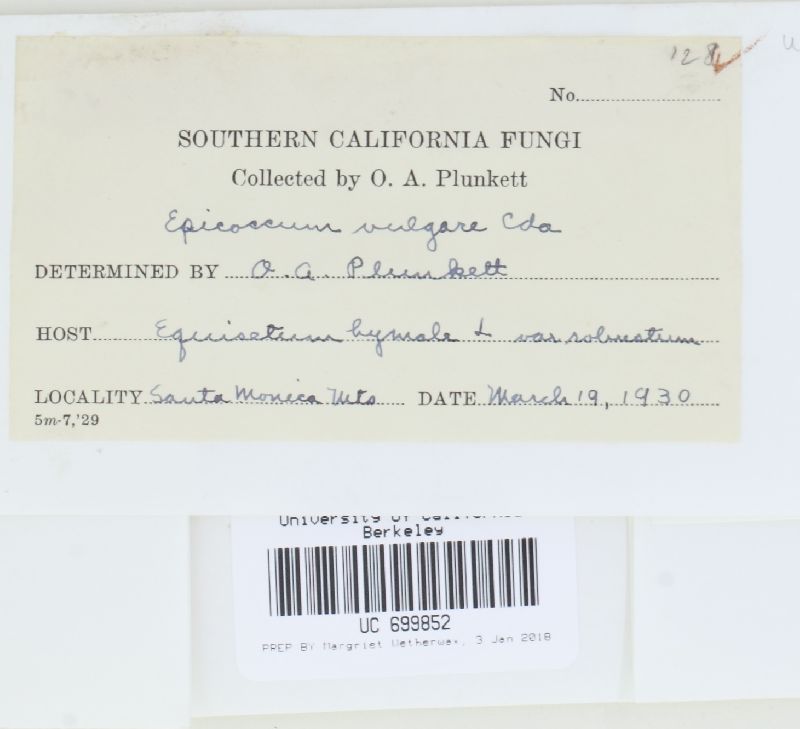 128
No.
SOUTHERN CALIFORNIA FUNGI
Collected by O. A. Plunkett
Epicoccum vulgare Cda
DETERMINED BY O. A. Plunkett
HOST Equisetum hymale L var robustum
LOCALITY Santa Monica Mts DATE March 19, 1930
5m-7,'29
University of California
Berkeley
UC 699852
PREP BY Margriet Wetherwax, 3 Jan 2018